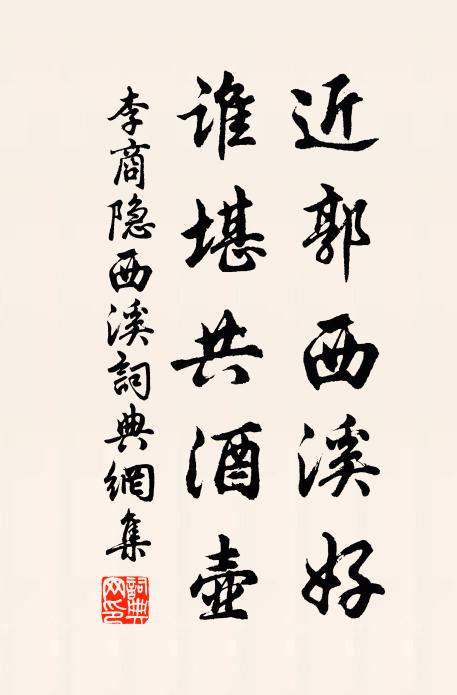 近郭西溪好
谁堪共酒壶
李商隐西溪詞典網集
詞典网印